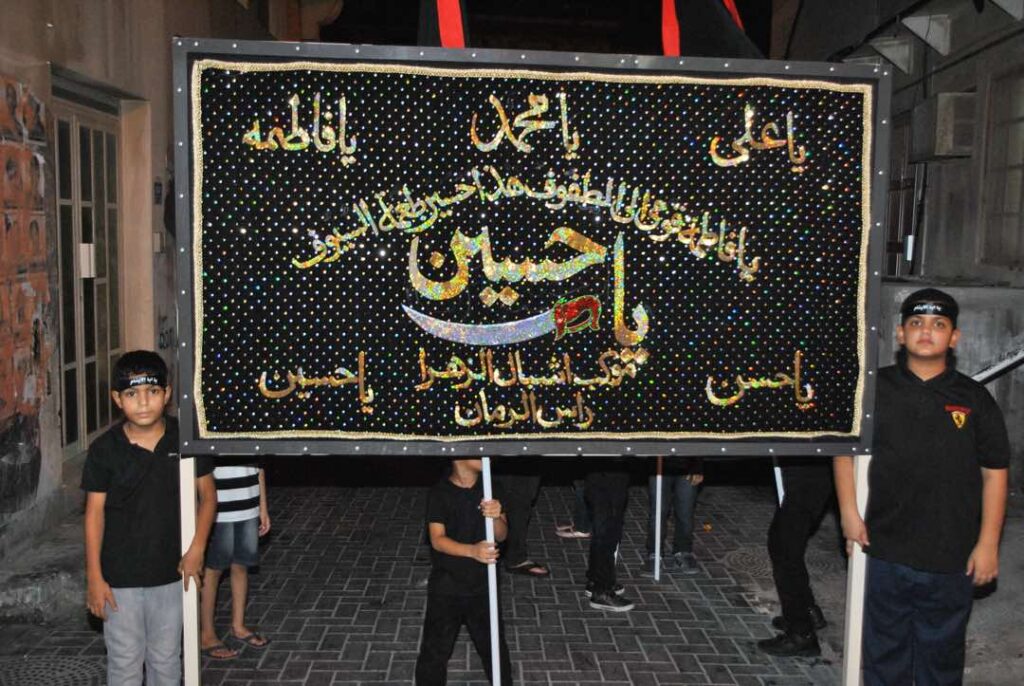 يا علي
يا محمد
يا فاطمه
يا فاطمة قومي الى الطفوف هذا حسين طعمة السيوف
يا حسين
يا حسن
موكب اشبال الزهرا
يا حسين
راس الرمان